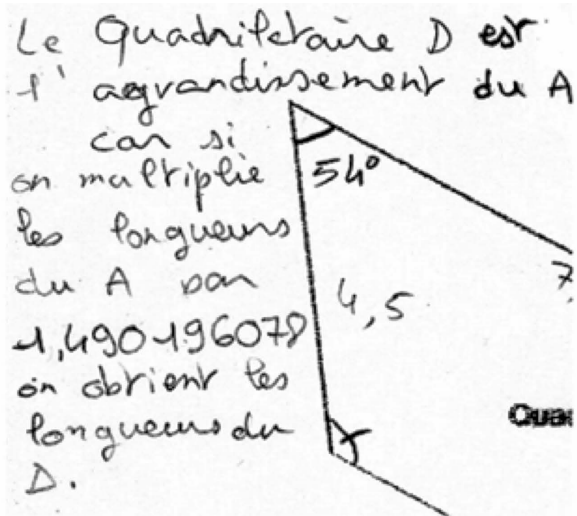 Le Quadrilataire D est
l' agrandissement du A
car si
on multiplie
les longueurs
du A par
1,490196078
on obtient les
longueurs du
D.
54°
4,5
7,
Qua